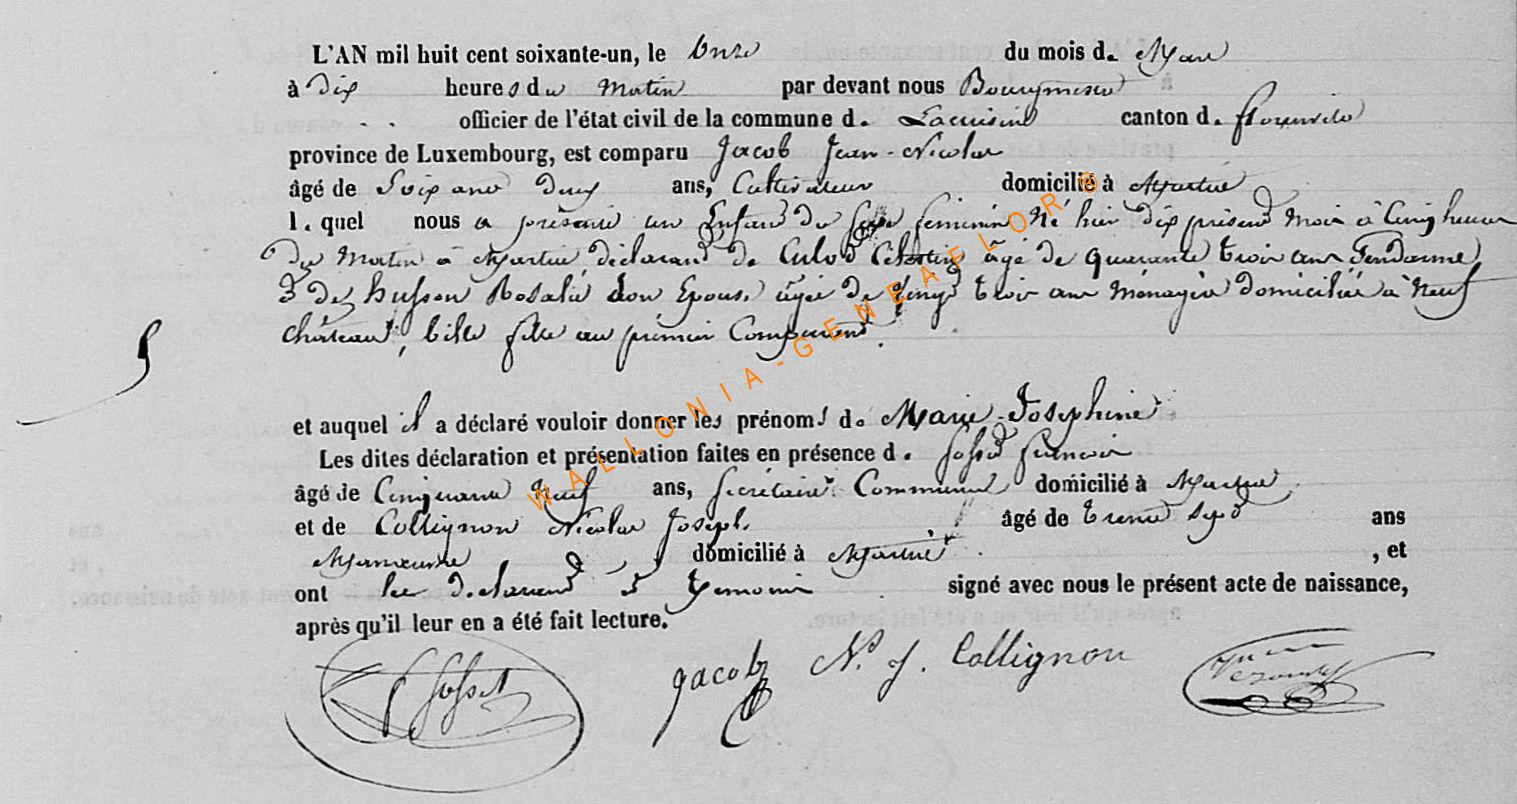 L'AN mil huit cent soixante-un, le Onze du mois d. Mars
à Dix heures du Matin par devant nous Bourgmestre
officier de l'état civil de la commune d. Lacuisine canton d. florenville
province de Luxembourg, est comparu Jacob Jean-Nicolas
âgé de Soixante Deux ans, Cultivateur domicilié à Martué
l. quel nous a présenté un Enfant du sexe féminin Né hier dix présent mois à Cinq heures
Du Matin à Martué, déclarant de Culot Célestin âgé de quarante trois ans, Gendarme
& de husson Rosalie son Epouse, âgée De vingt trois ans Ménagère domiciliée à Neuf
château, fille au premier Comparant.
5
et auquel il a déclaré vouloir donner les prénoms d. Marie-Joséphine
Les dites déclaration et présentation faites en présence d. françois
âgé de Cinquante Neuf ans, secrétaire Communal domicilié à Martué
et de Collignon Nicolas Joseph. âgé de trente sept ans
Manoeuvre domicilié à Martué , et
ont les déclarant & temoins signé avec nous le présent acte de naissance,
après qu'il leur en a été fait lecture.
Jacob N. J. Collignon
WALLONIA-GENEAFLOR®